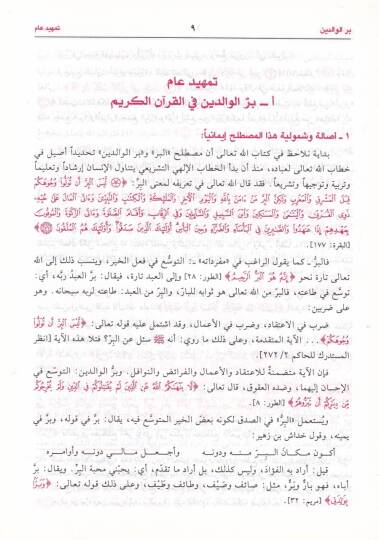 بر الوالدين ٩ تمهيد عام
تمهيد عام
أ ـ برّ الوالدين في القرآن الكريم
١ ـ أصالة وشمولية هذا المصطلح إيمانياً:
بداية نلاحظ في كتاب الله تعالى أن مصطلح «البر» و«بر الوالدين» تحديداً أصيل في
خطاب الله تعالى لعباده، منذ أن بدأ الخطاب الإلهي التشريعي يتناول الإنسان إرشاداً وتعليماً
وتربية وتوجيهاً وتشريعاً. فقد قال الله تعالى في تعريفه لمعنى البِرّ: ﴿لَّيْسَ الْبِرَّ أَن تُوَلُّوا وُجُوهَكُمْ
قِبَلَ الْمَشْرِقِ وَالْمَغْرِبِ وَلَٰكِنَّ الْبِرَّ مَنْ آمَنَ بِاللَّهِ وَالْيَوْمِ الْآخِرِ وَالْمَلَائِكَةِ وَالْكِتَابِ وَالنَّبِيِّينَ وَآتَى الْمَالَ عَلَىٰ حُبِّهِ
ذَوِي الْقُرْبَىٰ وَالْيَتَامَىٰ وَالْمَسَاكِينَ وَابْنَ السَّبِيلِ وَالسَّائِلِينَ وَفِي الرِّقَابِ وَأَقَامَ الصَّلَاةَ وَآتَى الزَّكَاةَ وَالْمُوفُونَ
بِعَهْدِهِمْ إِذَا عَاهَدُوا وَالصَّابِرِينَ فِي الْبَأْسَاءِ وَالضَّرَّاءِ وَحِينَ الْبَأْسِ أُولَٰئِكَ الَّذِينَ صَدَقُوا وَأُولَٰئِكَ هُمُ الْمُتَّقُونَ﴾
[البقرة: ١٧٧].
فالبرّ ـ كما يقول الراغب في «مفرداته» ـ: التوسّع في فعل الخير، وينسب ذلك إلى الله
تعالى تارة نحو ﴿إِنَّهُ هُوَ الْبَرُّ الرَّحِيمُ﴾ [الطور: ٢٨] وإلى العبد تارة، فيقال: برَّ العبدُ ربَّه، أي:
توسَّع في طاعته، فالبر من الله تعالى هو ثوابه للبارّ، والبِرّ من العبد: طاعته لربه سبحانه. وهو
على ضربين:
ضرب في الاعتقاد، وضرب في الأعمال، وقد اشتمل عليه قوله تعالى: ﴿لَّيْسَ الْبِرَّ أَن تُوَلُّوا
وُجُوهَكُمْ﴾ ... الآية المتقدمة، وعلى ذلك ما روي: أنه ﷺ سئل عن البِرّ؟ فتلا هذه الآية [انظر
المستدرك للحاكم ٢/ ٢٧٢].
فإن الآية متضمنةٌ للاعتقاد والأعمال والفرائض والنوافل. وبرُّ الوالدين: التوسع في
الإحسان إليهما، وضده العقوق، قال تعالى: ﴿لَّا يَنْهَاكُمُ اللَّهُ عَنِ الَّذِينَ لَمْ يُقَاتِلُوكُمْ فِي الدِّينِ وَلَمْ يُخْرِجُوكُم
مِّن دِيَارِكُمْ أَن تَبَرُّوهُمْ﴾ [الطور: ٨].
ويُستعمل «البِرُّ» في الصدق لكونه بعضَ الخير المتوسَّع فيه، يقال: برَّ في قوله، وبرّ في
يمينه، وقول خداش بن زهير:
أكون مكـانَ البِـرّ منه ودونـه وأجعـل مالي دونـه وأوامـره
قيل: أراد به الفؤادَ، وليس كذلك، بل أراد ما تقدّم، أي: يحبّني محبة البِرّ. ويقال: برّ
أباه، فهو بارٌّ وبَرّ، مثل: صائف وصَيْف، وطائف وطَيْف، وعلى ذلك قوله تعالى: ﴿وَبَرًّا
بِوَالِدَتِي﴾ [مريم: ٣٢].